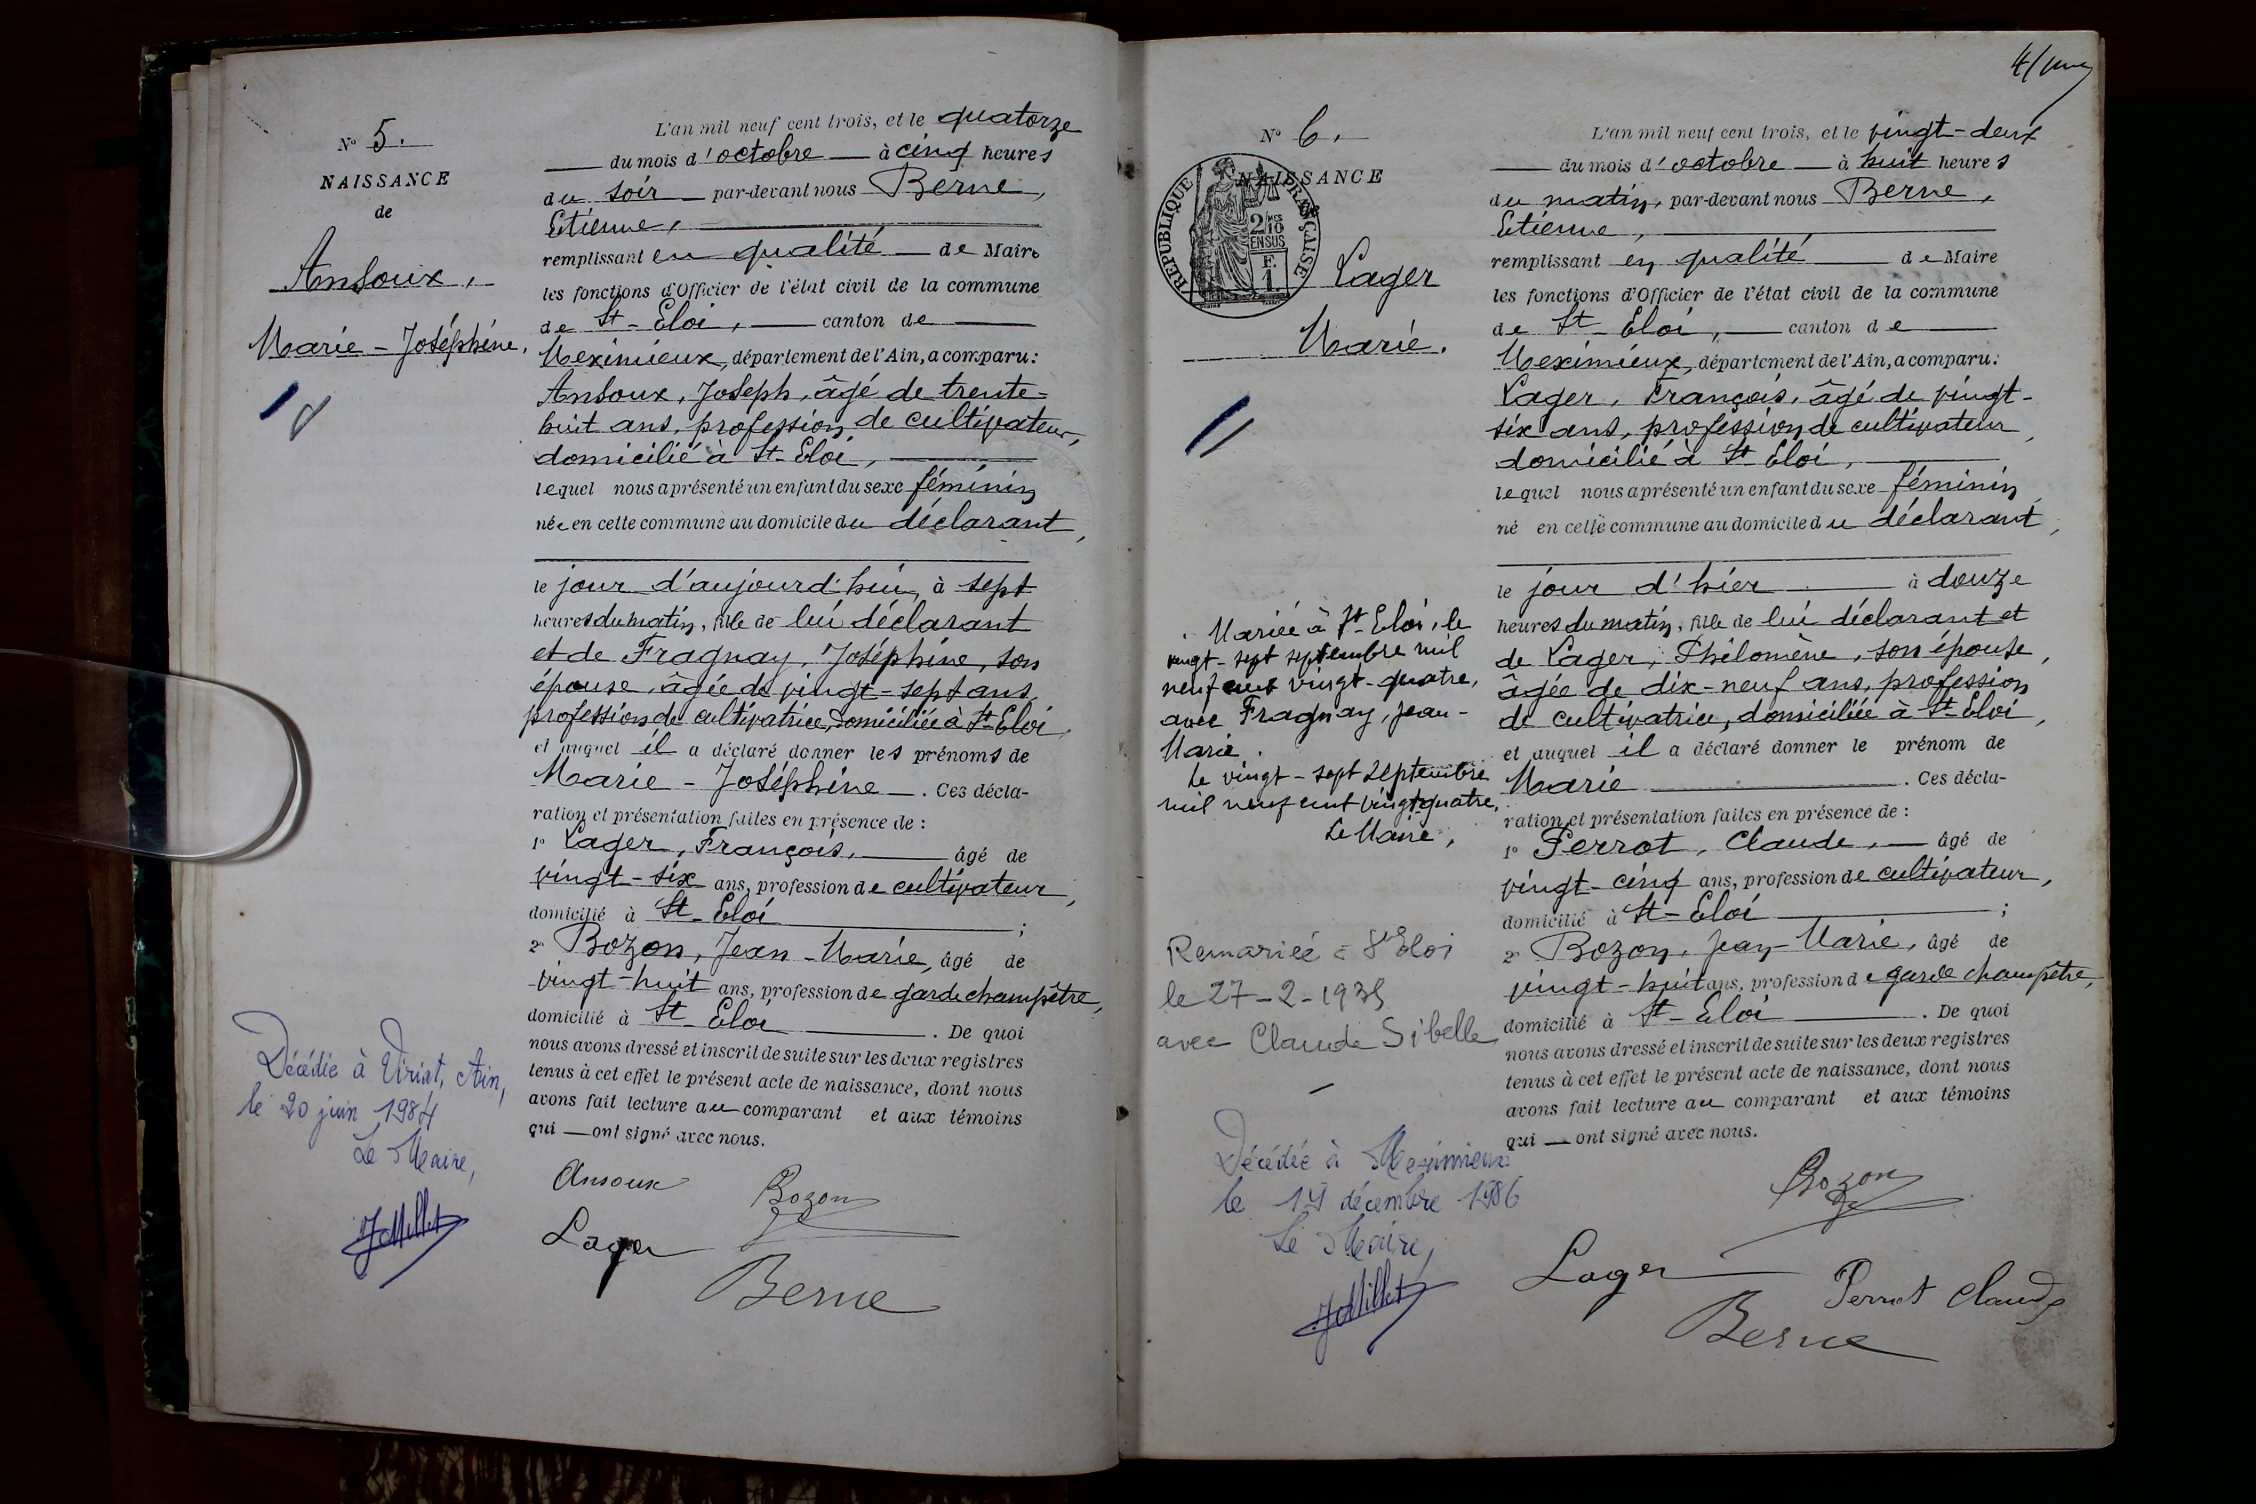 N° 5.
NAISSANCE
de
Ansoux,
Marie-Joséphine,
Décédée à Viriat, Ain,
le 20 juin 1984
Le Maire,
JMillet
L'an mil neuf cent trois, et le quatorze
du mois d'octobre à cinq heures
du soir par-devant nous Berne,
Etienne,
remplissant en qualité de Maire
les fonctions d'Officier de l'état civil de la commune
de St-Eloi, canton de
Meximieux, département de l'Ain, a comparu:
Ansoux, Joseph, âgé de trente-
huit ans, profession de cultivateur,
domicilié à St-Eloi,
lequel nous a présenté un enfant du sexe féminin
née en cette commune au domicile du déclarant,
le jour d'aujourd'hui, à sept
heures du matin, fille de lui déclarant
et de Fragnay, Joséphine, son
épouse, âgée de vingt-sept ans,
profession de cultivatrice, domiciliée à St-Eloi,
et auquel il a déclaré donner les prénoms de
Marie-Joséphine. Ces décla-
ration et présentation faites en présence de :
1° Lager, François, âgé de
vingt-six ans, profession de cultivateur,
domicilié à St-Eloi ;
2° Bozon, Jean-Marie, âgé de
vingt-huit ans, profession de garde champêtre,
domicilié à St-Eloi. De quoi
nous avons dressé et inscrit de suite sur les deux registres
tenus à cet effet le présent acte de naissance, dont nous
avons fait lecture au comparant et aux témoins
qui ont signé avec nous.
Ansoux Bozon
Lager
Berne
4/
N° 6.
NAISSANCE
REPUBLIQUE FRANÇAISE
2/10 MES
EN SUS
F.
1.
Lager
Marie.
Mariée à St-Eloi, le
vingt-sept septembre mil
neuf cent vingt-quatre,
avec Fragnay, Jean-
Marie.
Le vingt-sept septembre
mil neuf cent vingt-quatre,
Le Maire,
Remariée à St Eloi
le 27-2-1935
avec Claude Sibelle
Décédée à Meximieux
le 19 décembre 1986
Le Maire,
JMillet
L'an mil neuf cent trois, et le vingt-deux
du mois d'octobre à huit heures
du matin, par-devant nous Berne,
Etienne,
remplissant en qualité de Maire
les fonctions d'Officier de l'état civil de la commune
de St-Eloi, canton de
Meximieux, département de l'Ain, a comparu:
Lager, François, âgé de vingt-
six ans, profession de cultivateur,
domicilié à St Eloi,
lequel nous a présenté un enfant du sexe féminin,
né en cette commune au domicile du déclarant,
le jour d'hier à douze
heures du matin, fille de lui déclarant et
de Lager, Philomène, son épouse,
âgée de dix-neuf ans, profession
de cultivatrice, domiciliée à St-Eloi,
et auquel il a déclaré donner le prénom de
Marie. Ces décla-
ration et présentation faites en présence de :
1° Perrot, Claude, âgé de
vingt-cinq ans, profession de cultivateur,
domicilié à St-Eloi ;
2° Bozon, Jean-Marie, âgé de
vingt-huit ans, profession de garde champêtre,
domicilié à St-Eloi. De quoi
nous avons dressé et inscrit de suite sur les deux registres
tenus à cet effet le présent acte de naissance, dont nous
avons fait lecture au comparant et aux témoins
qui ont signé avec nous.
Bozon
Lager Perrot Claude
Berne